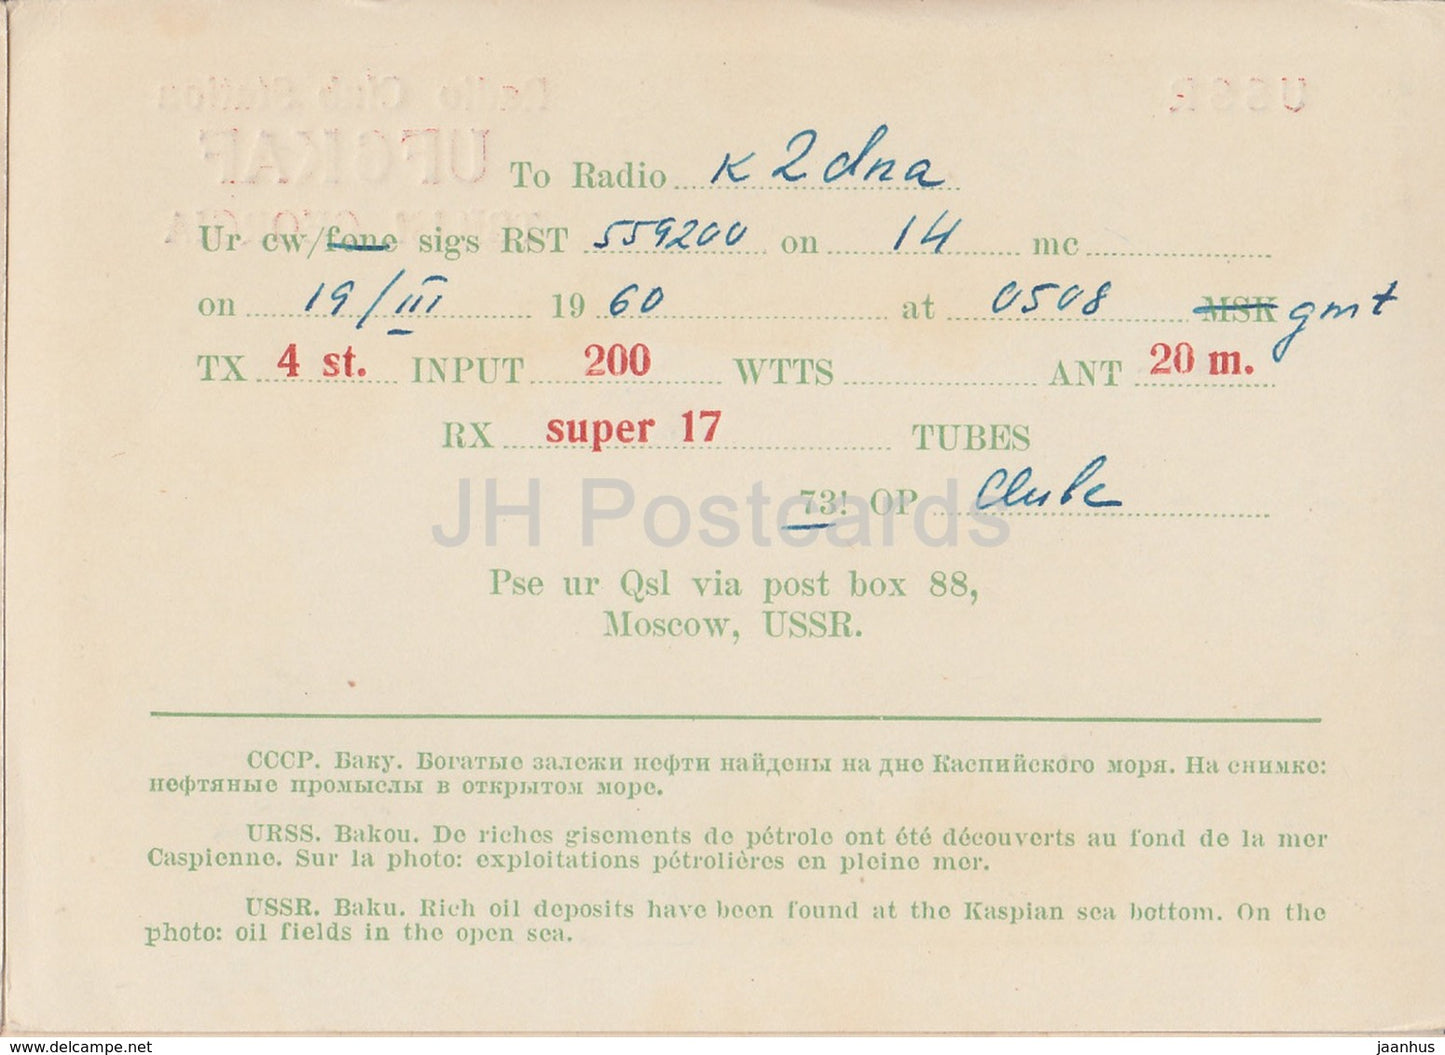 To Radio K2dna
Ur cw/fone sigs RST 559200 on 14 mc
on 19/III 1960 at 0508 MSK gmt
TX 4 st. INPUT 200 WTTS ANT 20 m.
RX super 17 TUBES
73! OP
JH Postcards
Pse ur Qsl via post box 88,
Moscow, USSR.
СССР. Баку. Богатые залежи нефти найдены на дне Каспийского моря. На снимке:
нефтяные промыслы в открытом море.
URSS. Bakou. De riches gisements de pétrole ont été découverts au fond de la mer
Caspienne. Sur la photo: exploitations pétrolières en pleine mer.
USSR. Baku. Rich oil deposits have been found at the Kaspian sea bottom. On the
photo: oil fields in the open sea.
www.delcampe.net
jaanhus